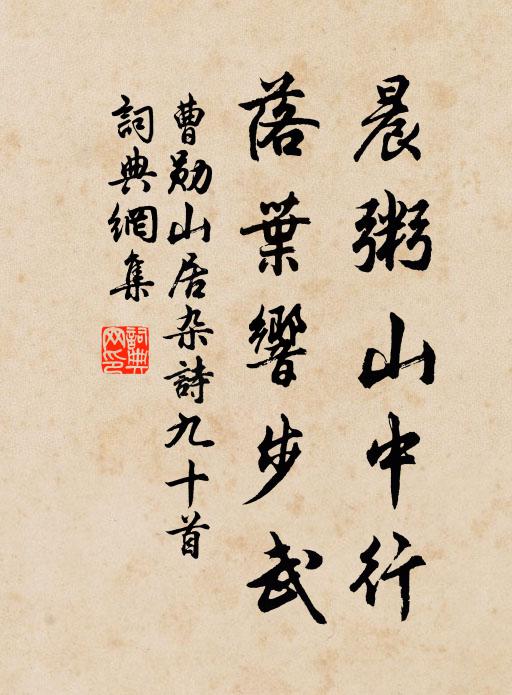 晨粥山中行
落葉響步武
曹勛山居杂詩九十首
詞典網集
詞典網印